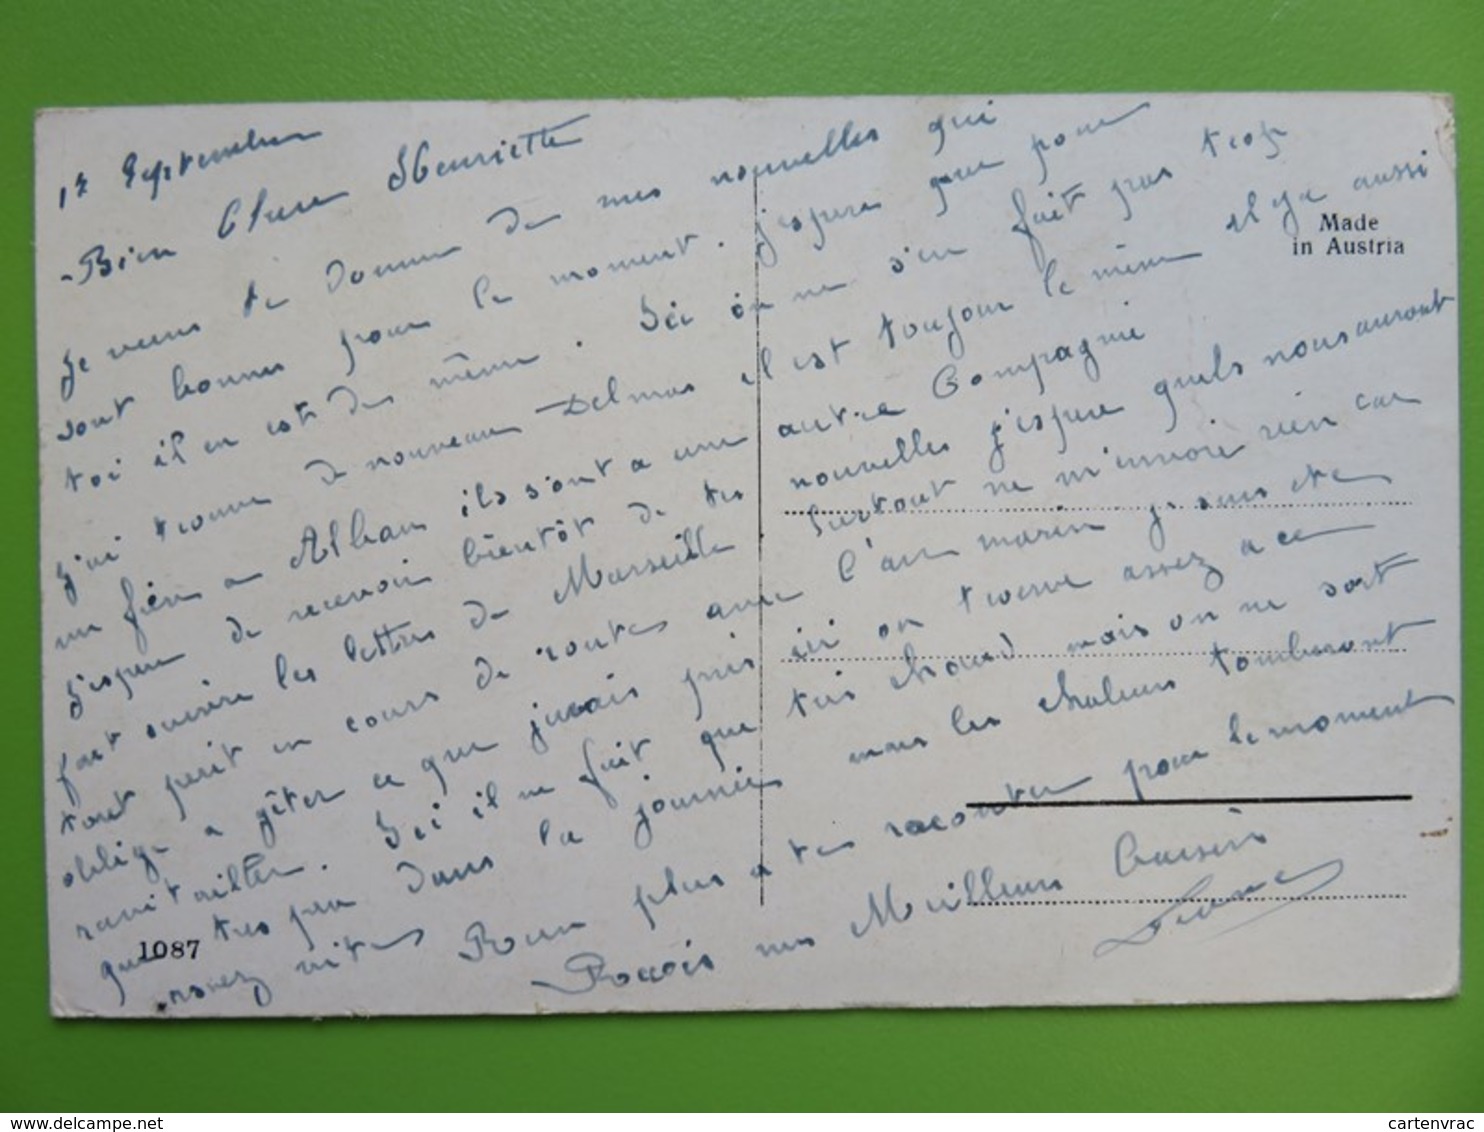 12 Septembre
Bien Chere Henriette
Je viens te donner de mes nouvelles qui
sont bonnes pour le moment. j'espere que pour
toi il en est de même. Ici on ne s'en fait pas trop
j'ai trouve de nouveau Delmas il est toujour le même il y a aussi
un fieu a Alban ils sont a une autre Compagnie
J'espere de recevoir bientôt de tes nouvelles j'espere quels nous auront
fait suivre les lettres de Marseille surtout ne m'envoie rien car
tout perit en cours de routes avec l'air marin je suis
oblige a gêter ce que j'avais pris ici on trouve assez a ce
ravitailler. Ici il ne fait que tres chaud mais on ne sort
que tres peu dans la journée mais les chaleurs tomberont
assez vite Rien plus a te raconter pour le moment
Recois mes Meilleurs Baisers
Made
in Austria
1087
cartenvrac